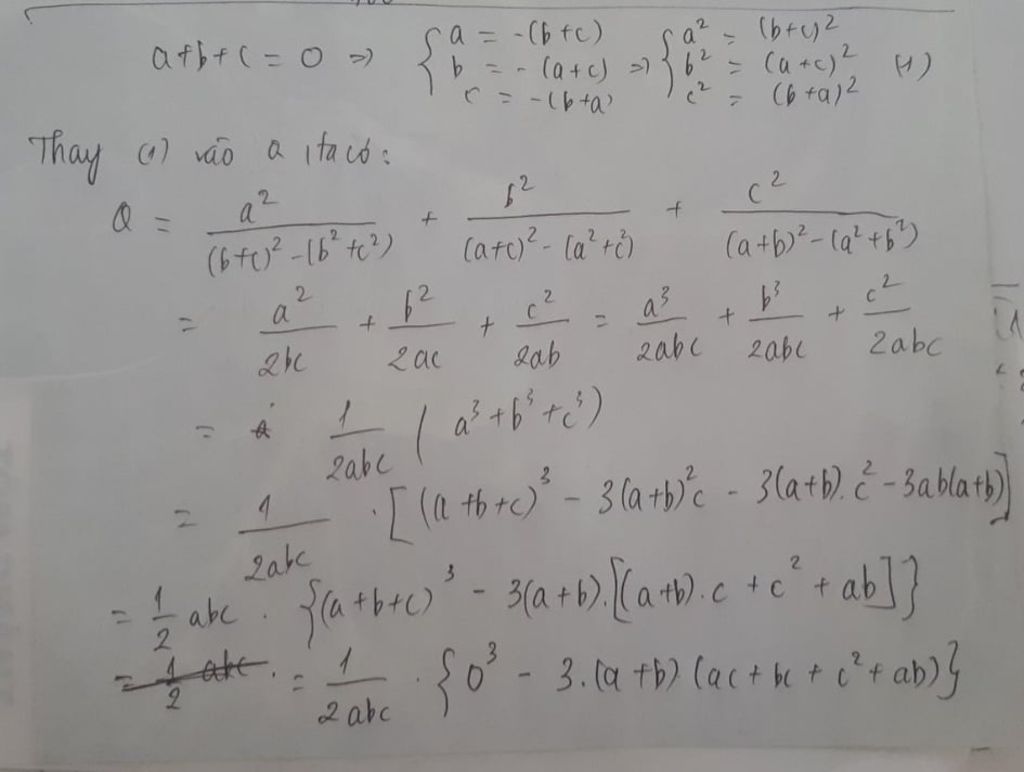 a+b+c = 0 => { a = -(b+c) => { a² = (b+c)²
b = -(a+c) b² = (a+c)² (1)
c = -(b+a) c² = (b+a)²
Thay (1) vào Q, ta có:
Q = a²/((b+c)² - (b²+c²)) + b²/((a+c)² - (a²+c²)) + c²/((a+b)² - (a²+b²))
= a²/2bc + b²/2ac + c²/2ab = a³/2abc + b³/2abc + c²/2abc
= 1/2abc (a³+b³+c³)
= 1/2abc . [(a+b+c)³ - 3(a+b)²c - 3(a+b).c² - 3ab(a+b)]
= 1/2 abc . {(a+b+c)³ - 3(a+b).[(a+b).c + c² + ab]}
= 1/2 abc . = 1/2abc . {0³ - 3.(a+b)(ac+bc+c²+ab)}